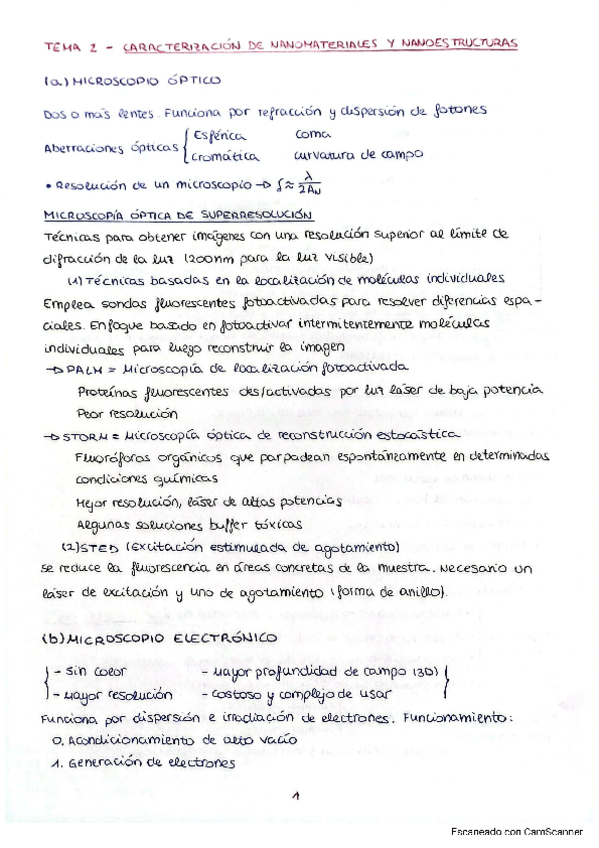 TEMA 2 - CARACTERIZACIÓN DE NANOMATERIALES Y NANOESTRUCTURAS
(a) MICROSCOPIO ÓPTICO
Dos o más lentes. Funciona por refracción y dispersión de fotones
Aberraciones ópticas { Esférica coma
cromática curvatura de campo
• Resolución de un microscopio → δ ≈ λ / 2AN
MICROSCOPÍA ÓPTICA DE SUPERRESOLUCIÓN
Técnicas para obtener imágenes con una resolución superior al límite de
difracción de la luz (200nm para la luz visible)
(1) Técnicas basadas en la localización de moléculas individuales
Emplea sondas fluorescentes fotoactivadas para resolver diferencias espa-
ciales. Enfoque basado en fotoactivar intermitentemente moléculas
individuales para luego reconstruir la imagen
→ PALM = Microscopía de localización fotoactivada
Proteínas fluorescentes des/activadas por luz láser de baja potencia
Peor resolución
→ STORM = Microscopía óptica de reconstrucción estocástica
Fluoróforos orgánicos que parpadean espontáneamente en determinadas
condiciones químicas
Mejor resolución, láser de altas potencias
Algunas soluciones buffer tóxicas
(2) STED (Excitación estimulada de agotamiento)
Se reduce la fluorescencia en áreas concretas de la muestra. Necesario un
láser de excitación y uno de agotamiento (forma de anillo).
(b) MICROSCOPIO ELECTRÓNICO
{ - Sin color - Mayor profundidad de campo (3D) }
- Mayor resolución - Costoso y complejo de usar
Funciona por dispersión e irradiación de electrones. Funcionamiento:
0. Acondicionamiento de alto vacío
1. Generación de electrones
1
Escaneado con CamScanner